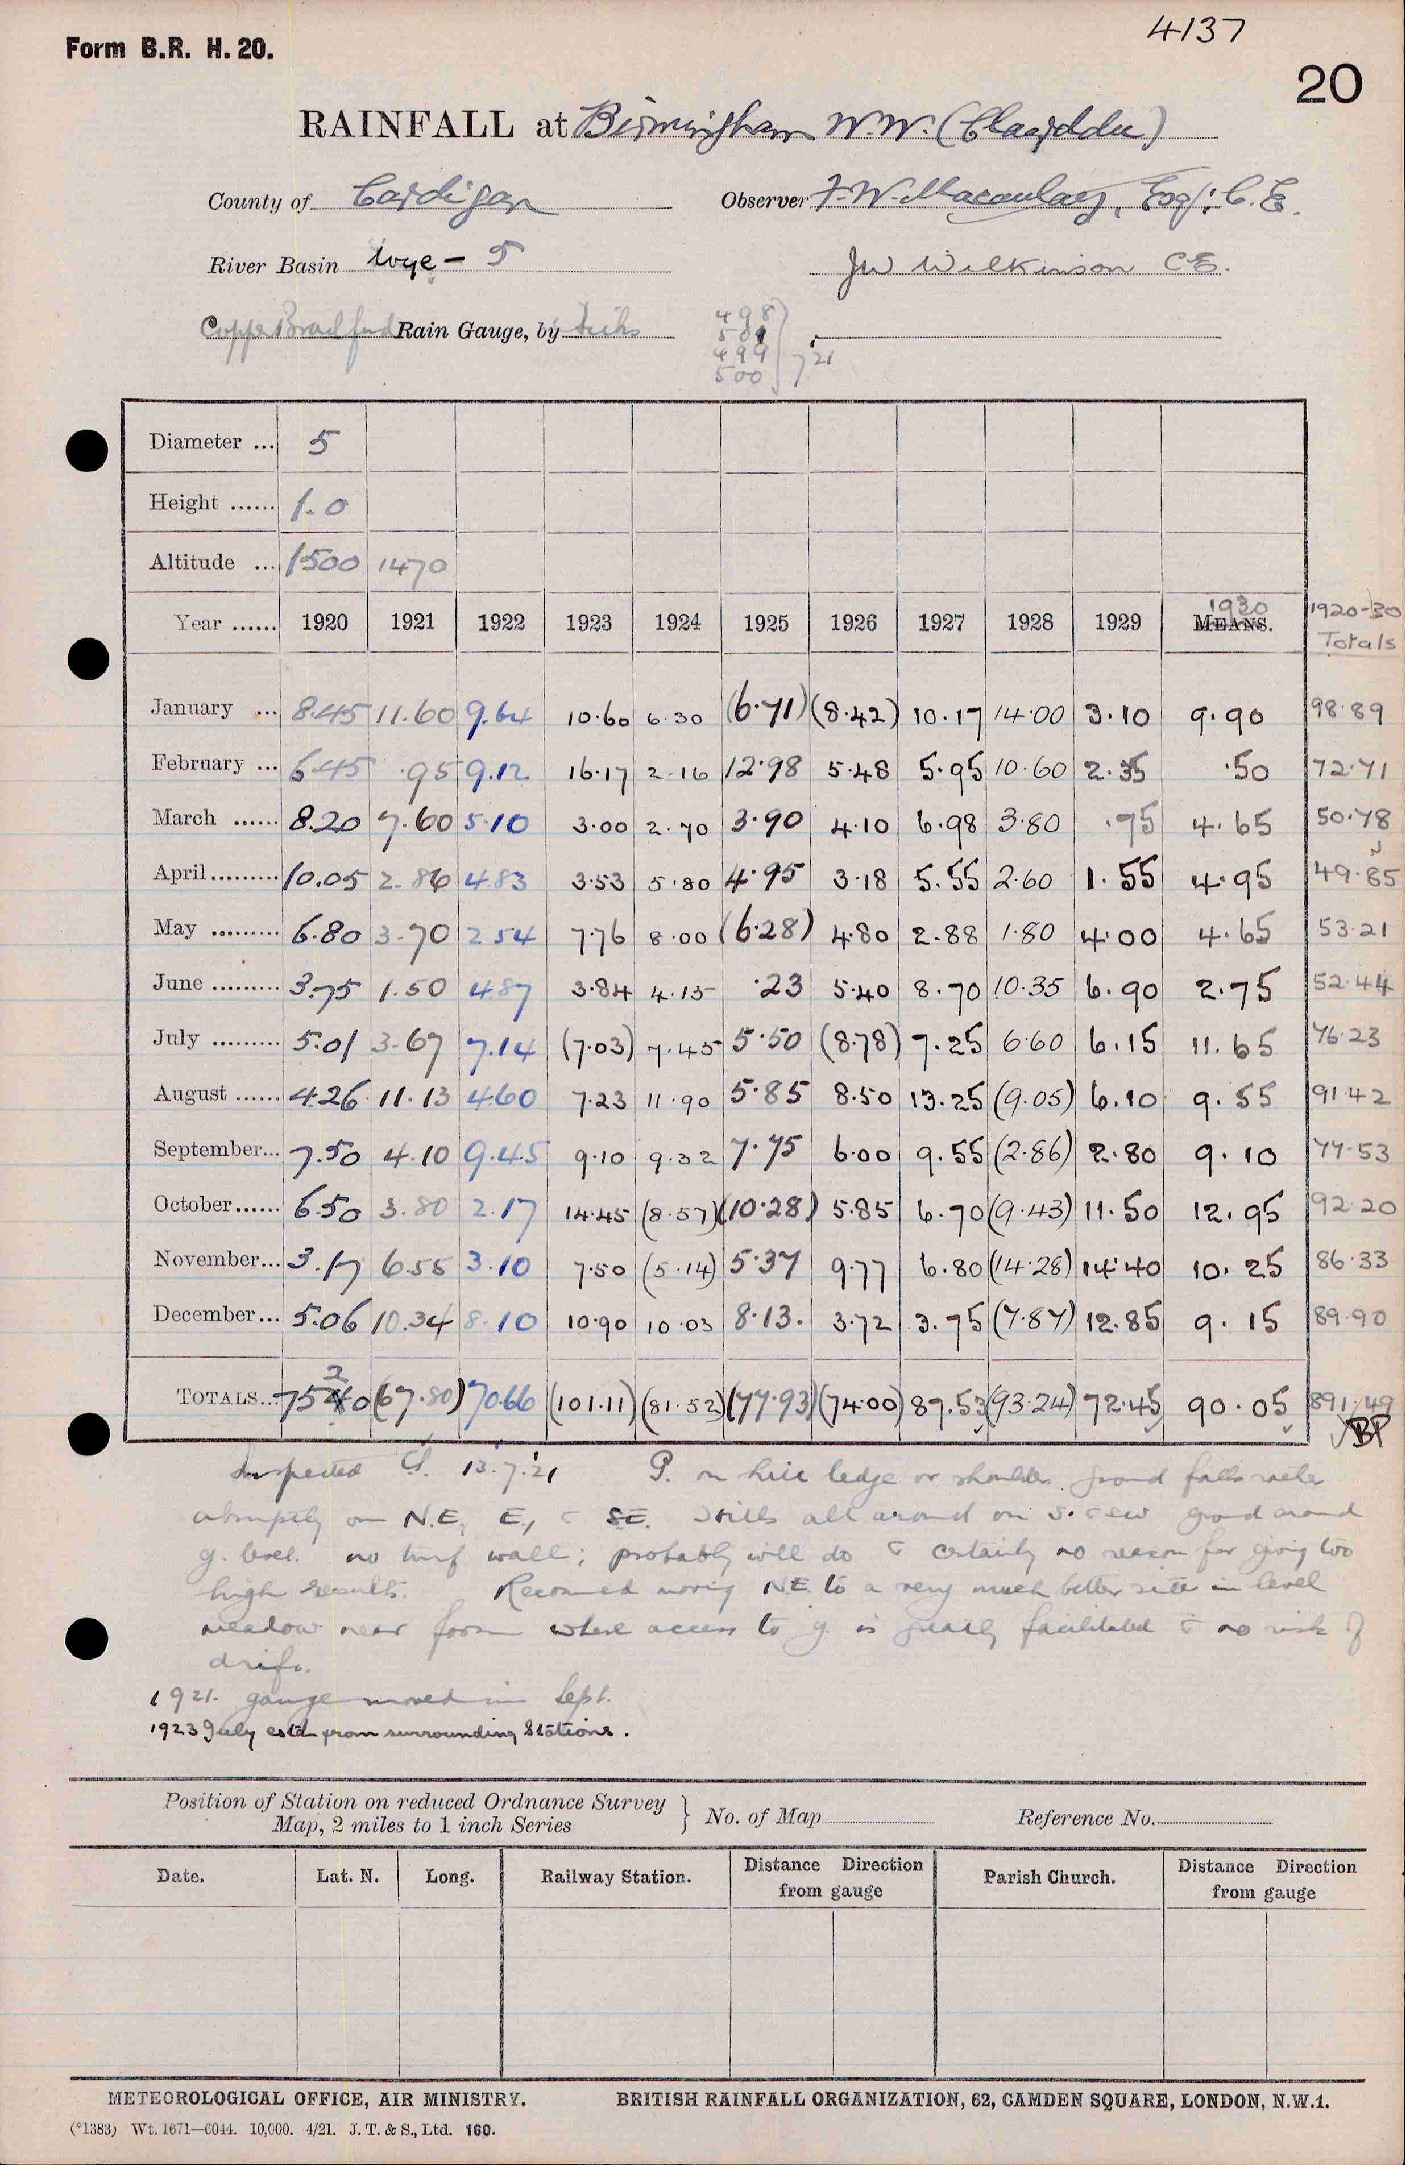 4137
Form B.R. H. 20.
20
RAINFALL at Birmingham W.W. (Claerddu)
County of Cardigan Observer F. W. Macaulay, Esq: C.E.
River Basin Wye - 5 JW Wilkinson CE.
Copper Bradford Rain Gauge, by Dicks
498
501
499
500 } 7 21
Diameter ... 5
Height ...... 1.0
Altitude ... 1500 1470
Year ...... 1920 1921 1922 1923 1924 1925 1926 1927 1928 1929 MEANS. 1930 1920-30 Totals
January ... 8.45 11.60 9.64 10.60 6.30 (6.71) (8.42) 10.17 14.00 3.10 9.90 98.89
February ... 6.45 .95 9.12 16.17 2.16 12.98 5.48 5.95 10.60 2.35 .50 72.71
March ...... 8.20 7.60 5.10 3.00 2.70 3.90 4.10 6.98 3.80 .75 4.65 50.78
April......... 10.05 2.86 4.83 3.53 5.80 4.95 3.18 5.55 2.60 1.55 4.95 49.85
May ......... 6.80 3.70 2.54 7.76 8.00 (6.28) 4.80 2.88 1.80 4.00 4.65 53.21
June ......... 3.75 1.50 4.87 3.84 4.15 .23 5.40 8.70 10.35 6.90 2.75 52.44
July ......... 5.01 3.67 7.14 (7.03) 7.45 5.50 (8.78) 7.25 6.60 6.15 11.65 76.23
August ...... 4.26 11.13 4.60 7.23 11.90 5.85 8.50 13.25 (9.05) 6.10 9.55 91.42
September... 7.50 4.10 9.45 9.10 9.32 7.75 6.00 9.55 (2.86) 2.80 9.10 77.53
October...... 6.50 3.80 2.17 14.45 (8.57) (10.28) 5.85 6.70 (9.43) 11.50 12.95 92.20
November... 3.17 6.55 3.10 7.50 (5.14) 5.37 9.77 6.80 (14.28) 14.40 10.25 86.33
December... 5.06 10.34 8.10 10.90 10.03 8.13. 3.72 3.75 (7.87) 12.85 9.15 89.90
TOTALS... 75.20 (67.80) 70.66 (101.11) (81.52) (77.93) (74.00) 87.53 (93.24) 72.45 90.05 891.49
BP
Inspected 13.7.21 P. on hill ledge or shoulder. ground falls rather
abruptly on N.E, E, & SE. Hills all around on S. & SW ground around
g. level. no turf wall; probably will do & certainly no reason for giving too
high results. Recommend moving NE to a very much better site in level
meadow near farm where access to g. is greatly facilitated & no risk of
drift.
1921. gauge moved in Sept.
1923 July estd from surrounding Stations.
Position of Station on reduced Ordnance Survey Map, 2 miles to 1 inch Series } No. of Map Reference No.
Date. Lat. N. Long. Railway Station. Distance Direction from gauge Parish Church. Distance Direction from gauge
METEOROLOGICAL OFFICE, AIR MINISTRY. BRITISH RAINFALL ORGANIZATION, 62, CAMDEN SQUARE, LONDON, N.W.1.
(*1383) Wt. 1671—6044. 10,000. 4/21. J. T. & S., Ltd. 160.